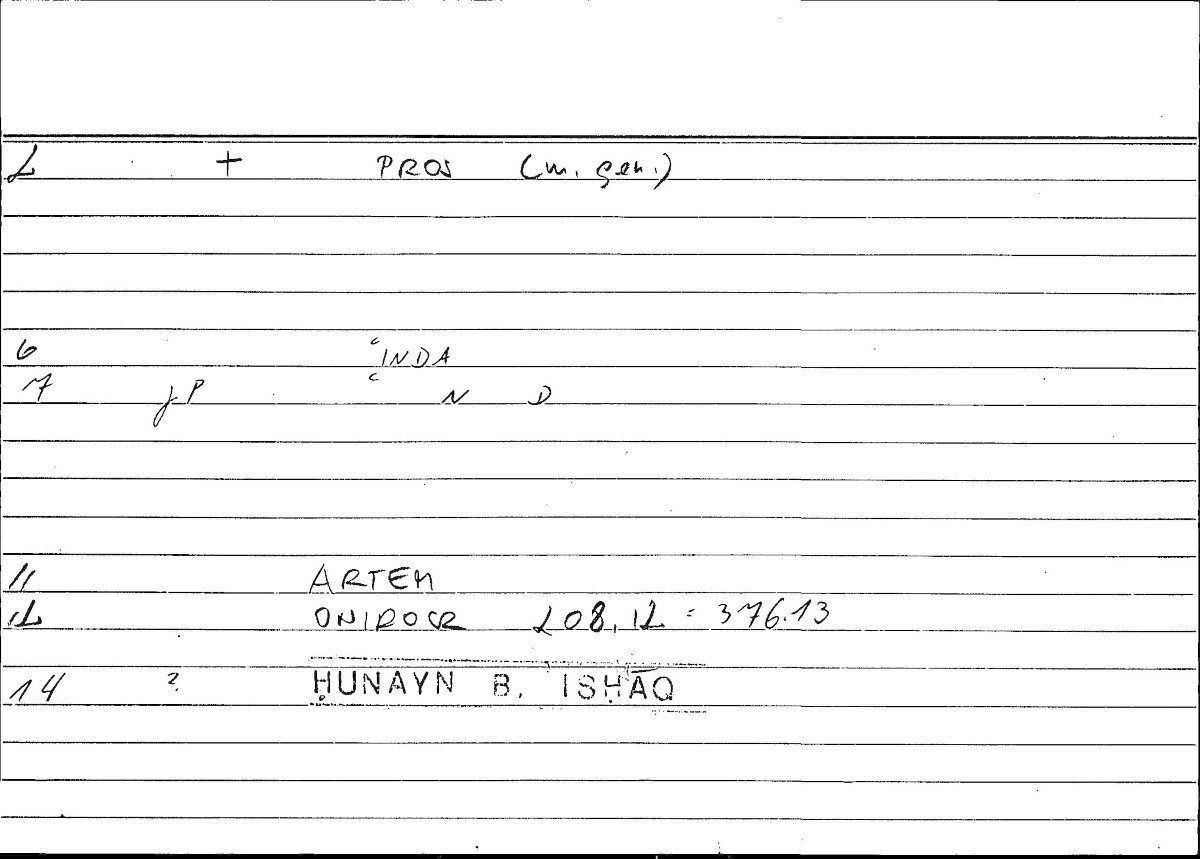 2 + PROS (m. gen.)
6 ʿINDA
7 jP ʿ N D
11 ARTEM
12 ONIROCR 208,12 = 376.13
14 ? ḤUNAYN B. ISḤĀQ